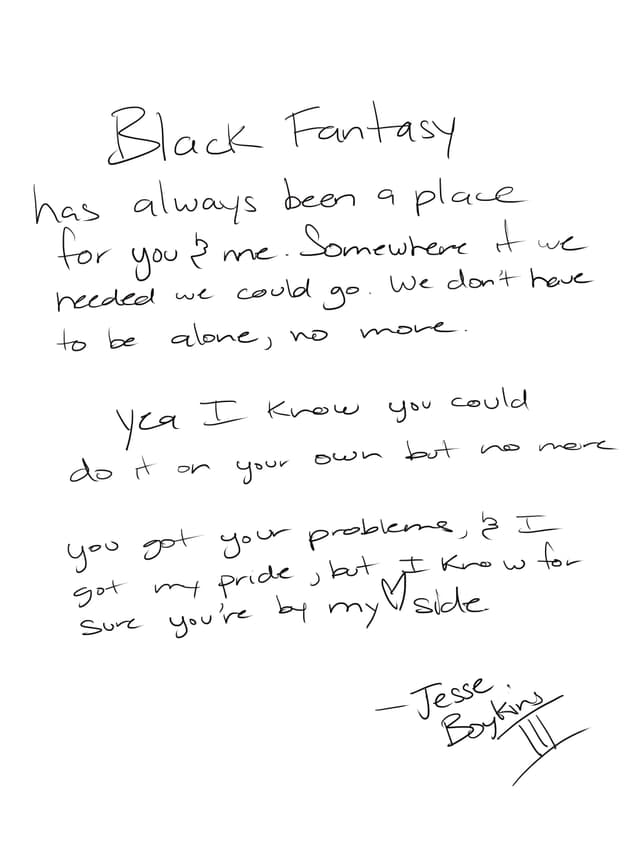 Black Fantasy
has always been a place
for you & me. Somewhere if we
needed we could go. We don't have
to be alone, no more.
yea I know you could
do it on your own but no more
you got your problems, & I
got my pride, but I know for
sure you're by my ♡ side
— Jesse
Boykins
III